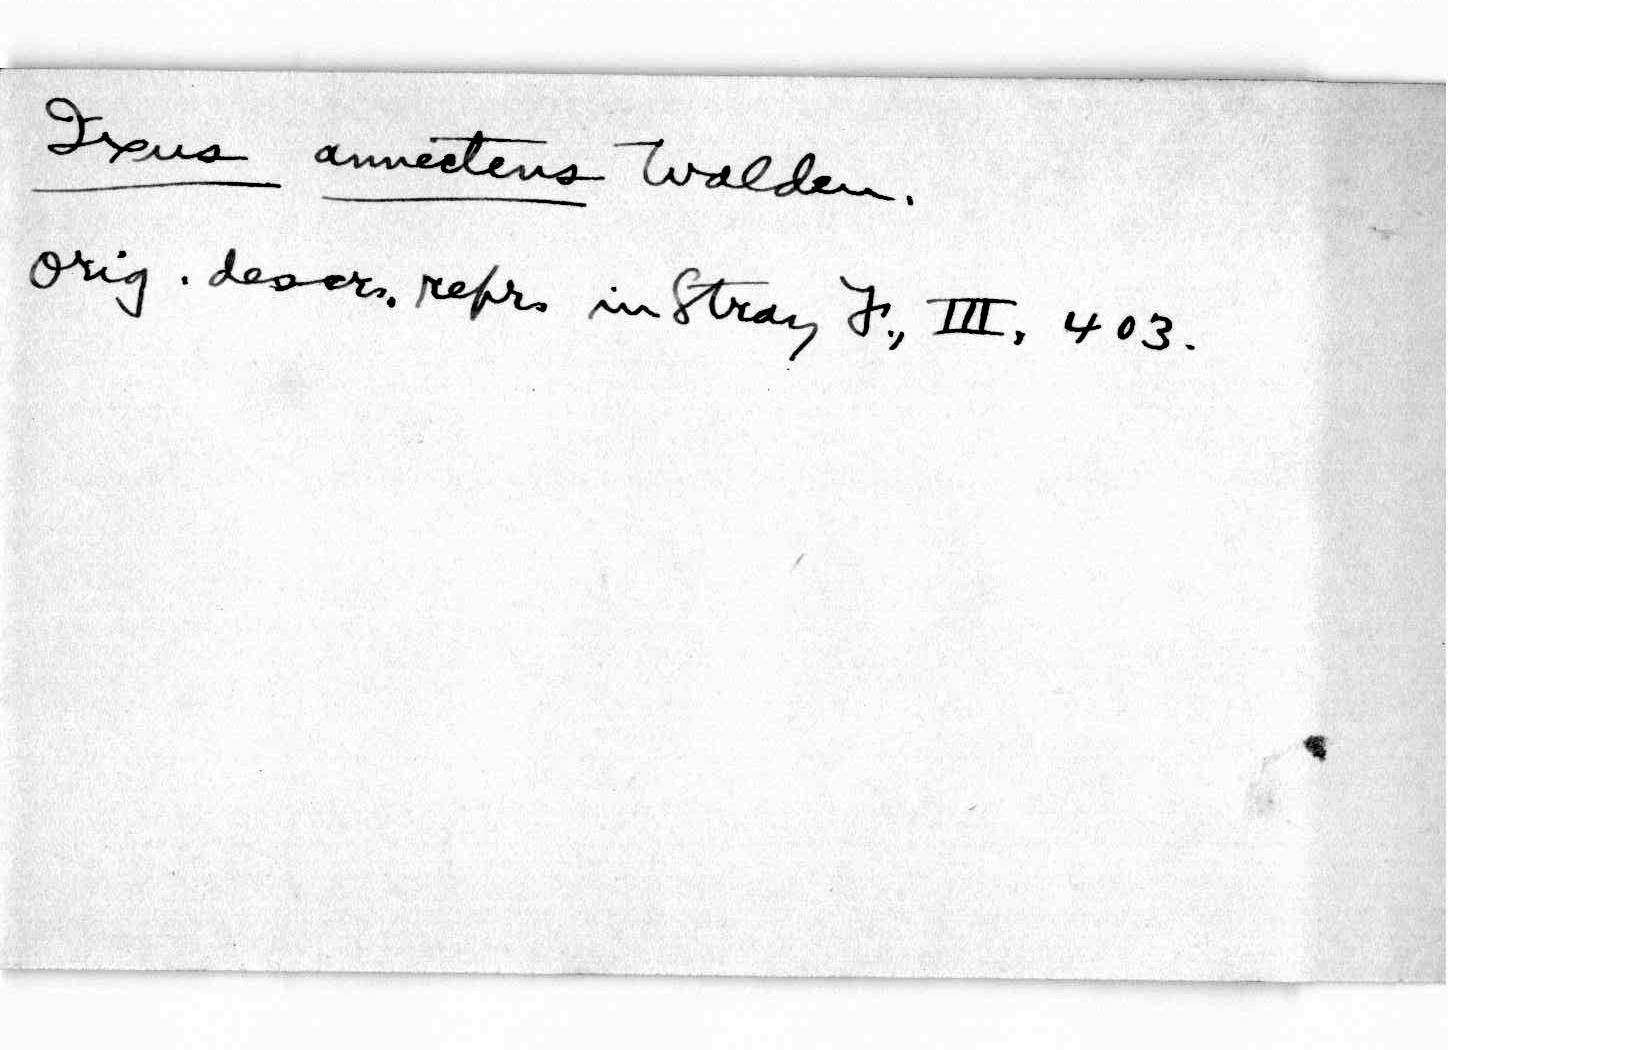 Ixus annectens Walden.
Orig. descr. repr. in Stray F., III, 403.